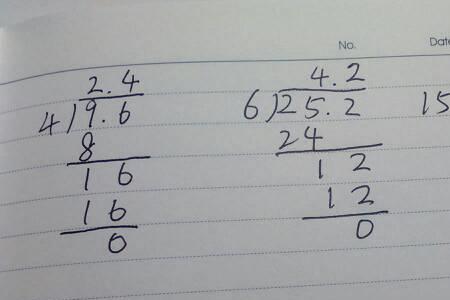 No.
Date
2.4
4)9.6
8
16
16
0
4.2
6)25.2
24
12
12
0
15